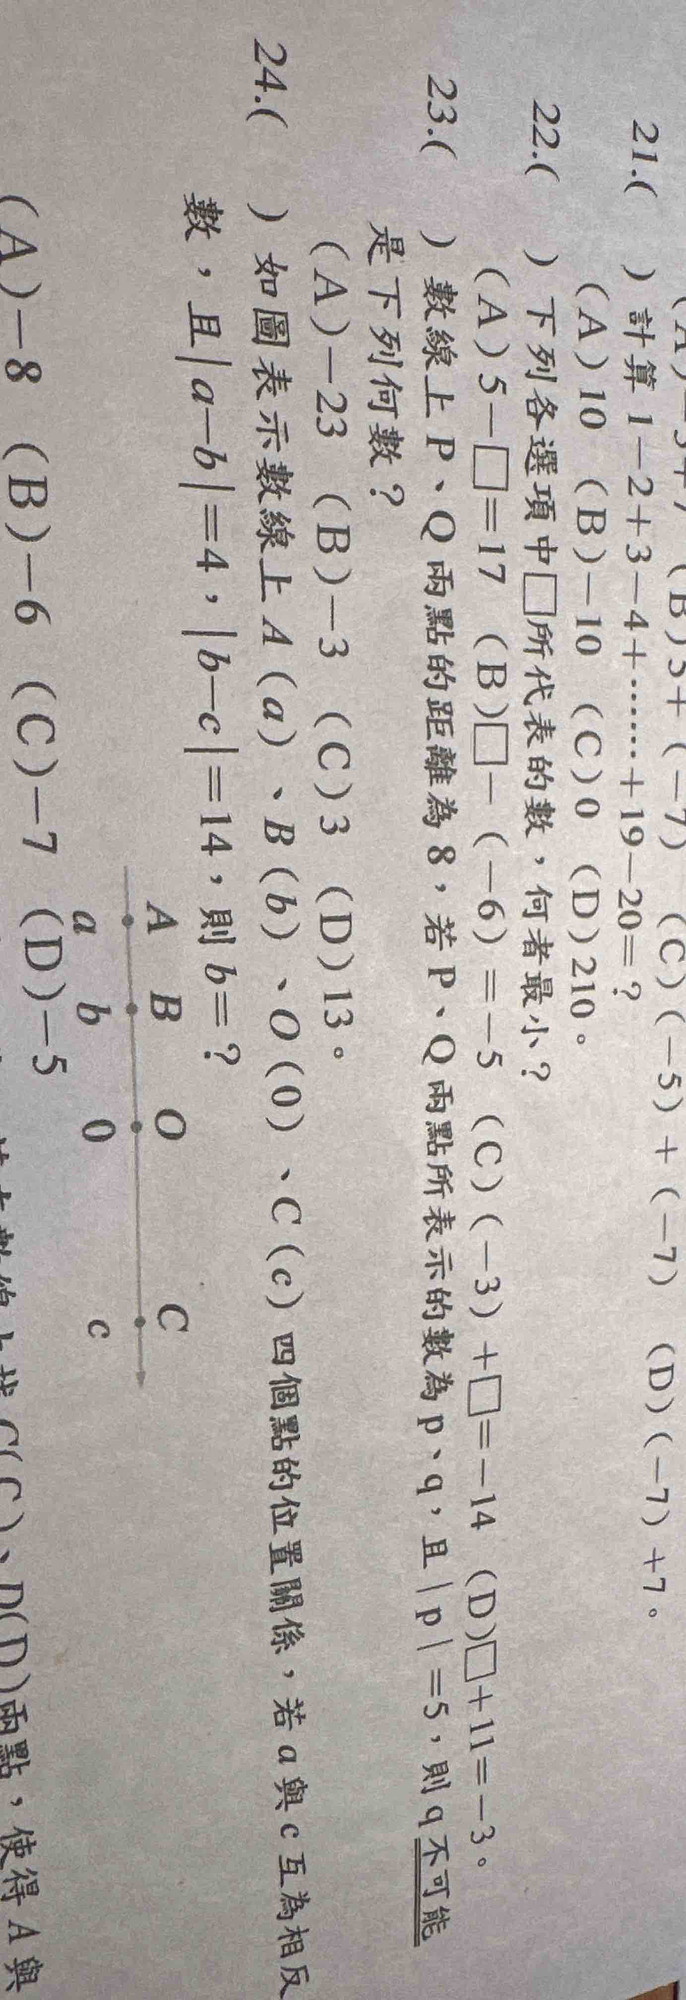 (B)5+(−7) (C)(−5)+(−7) (D)(−7)+7。
21.( )計算1−2+3−4+……+19−20=?
(A)10 (B)−10 (C)0 (D)210。
22.( )下列各選項中□所代表的數,何者最小?
(A)5−□=17 (B)□−(−6)=−5 (C)(−3)+□=−14 (D)□+11=−3。
23.( )數線上P、Q兩點的距離為8,若P、Q兩點所表示的數為p、q,且|p|=5,則q不可能
是下列何數?
(A)−23 (B)−3 (C)3 (D)13。
24.( )如圖表示數線上A(a)、B(b)、O(0)、C(c)四個點的位置關係,若a與c互為相反
數,且|a−b|=4,|b−c|=14,則b=?
A B O C
a b 0 c
(A)−8 (B)−6 (C)−7 (D)−5
C(C)、D(D)兩點,使得A與